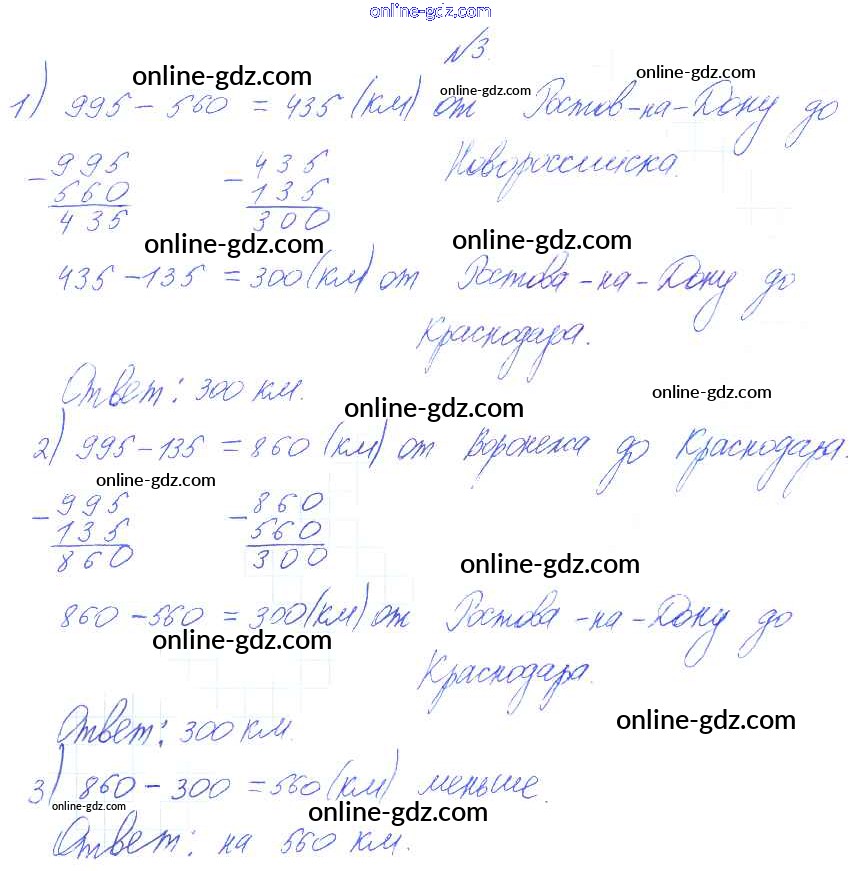 online-gdz.com
№3.
online-gdz.com online-gdz.com online-gdz.com
1) 995 - 560 = 435 (км) от Ростов-на-Дону до
Новороссийска.
- 995 - 435
560 135
435 300
online-gdz.com online-gdz.com
435 - 135 = 300 (км) от Ростова-на-Дону до
Краснодара.
Ответ: 300 км.
online-gdz.com online-gdz.com
2) 995 - 135 = 860 (км) от Воронежа до Краснодара.
online-gdz.com
- 995 - 860
135 560
860 300
online-gdz.com
860 - 560 = 300 (км) от Ростова-на-Дону до
online-gdz.com
Краснодара.
Ответ: 300 км.
online-gdz.com
3) 860 - 300 = 560 (км) меньше.
online-gdz.com online-gdz.com
Ответ: на 560 км.